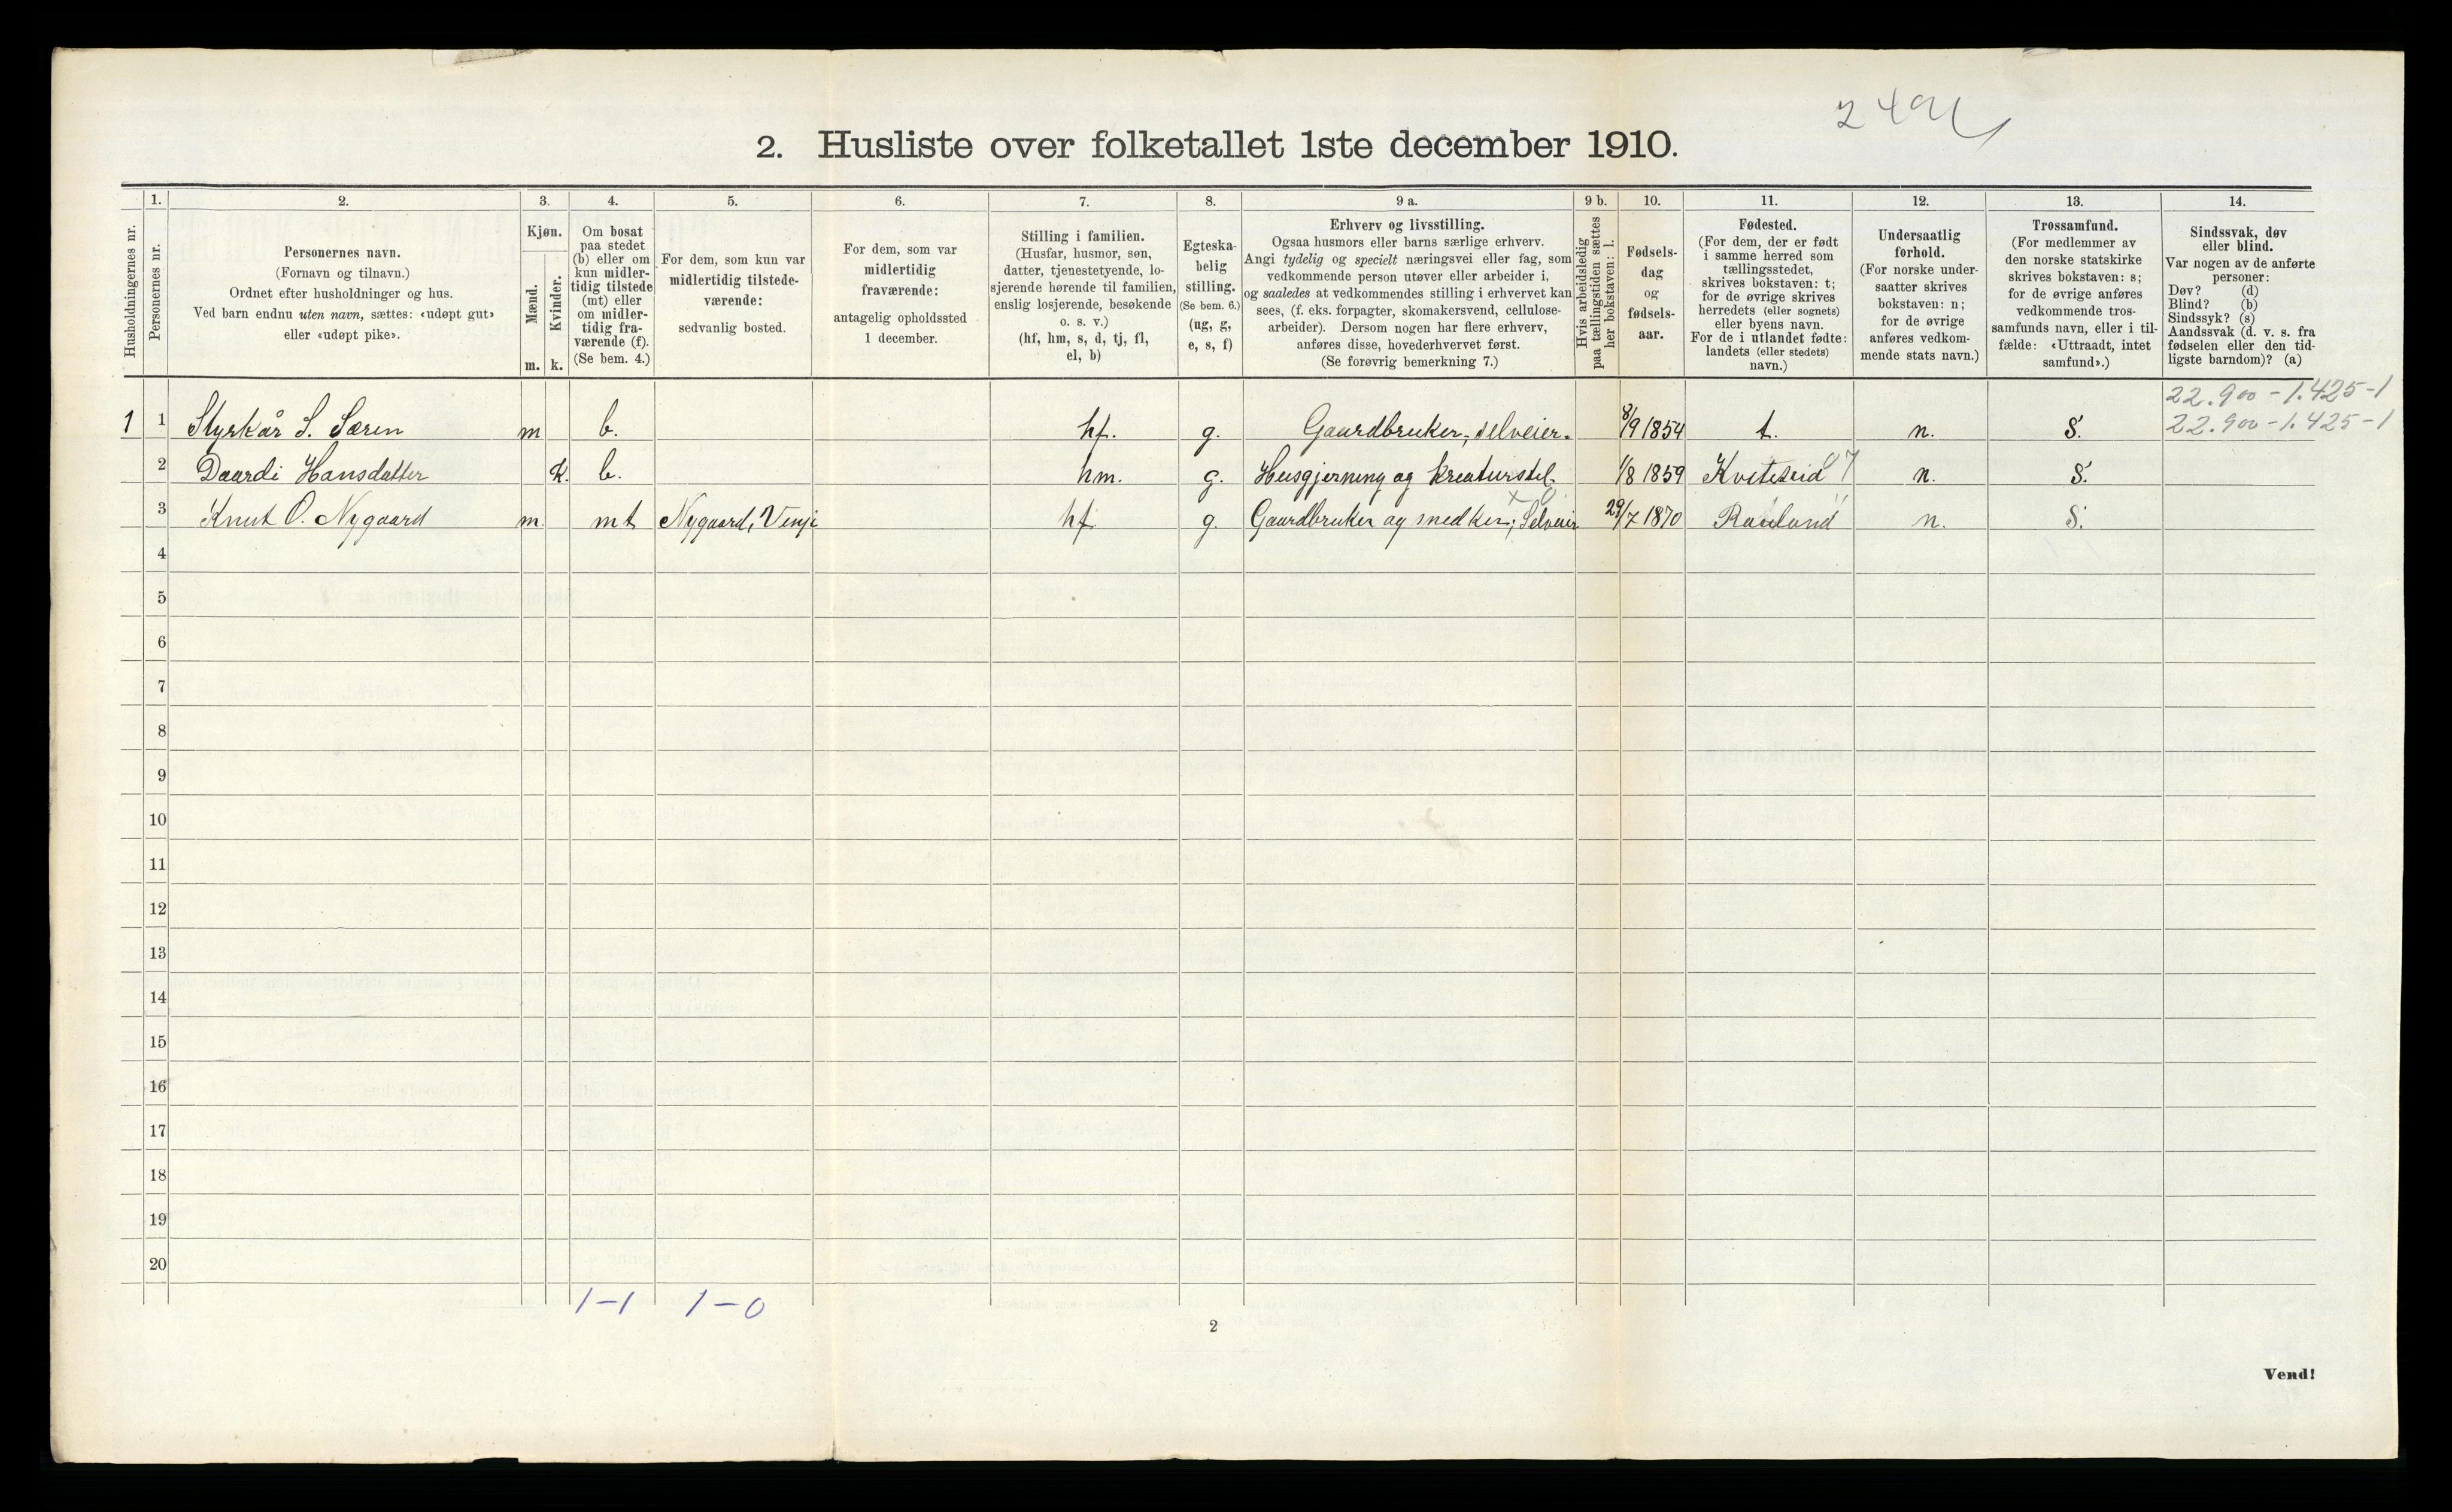 2. Husliste over folketallet 1ste december 1910.
1. 2. 3. 4. 5. 6. 7. 8. 9 a. 9 b. 10. 11. 12. 13. 14.
Husholdningernes nr.
Personernes nr.
Personernes navn.
(Fornavn og tilnavn.)
Ordnet efter husholdninger og hus.
Ved barn endnu uten navn, sættes: «udøpt gut»
eller «udøpt pike».
Kjøn.
Mænd.
m.
Kvinder.
k.
Om bosat
paa stedet
(b) eller om
kun midler-
tidig tilstede
(mt) eller
om midler-
tidig fra-
værende (f).
(Se bem. 4.)
For dem, som kun var
midlertidig tilstede-
værende:
sedvanlig bosted.
For dem, som var
midlertidig
fraværende:
antagelig opholdssted
1 december.
Stilling i familien.
(Husfar, husmor, søn,
datter, tjenestetyende, lo-
sjerende hørende til familien,
enslig losjerende, besøkende
o. s. v.)
(hf, hm, s, d, tj, fl,
el, b)
Egteska-
belig
stilling.
(Se bem. 6.)
(ug, g,
e, s, f)
Erhverv og livsstilling.
Ogsaa husmors eller barns særlige erhverv.
Angi tydelig og specielt næringsvei eller fag, som
vedkommende person utøver eller arbeider i,
og saaledes at vedkommendes stilling i erhvervet kan
sees, (f. eks. forpagter, skomakersvend, cellulose-
arbeider). Dersom nogen har flere erhverv,
anføres disse, hovederhvervet først.
(Se forøvrig bemerkning 7.)
Hvis arbeidsledig
paa tællingstiden sættes
her bokstaven: l.
Fødsels-
dag
og
fødsels-
aar.
Fødested.
(For dem, der er født
i samme herred som
tællingsstedet,
skrives bokstaven: t;
for de øvrige skrives
herredets (eller sognets)
eller byens navn.
For de i utlandet fødte:
landets (eller stedets)
navn.)
Undersaatlig
forhold.
(For norske under-
saatter skrives
bokstaven: n;
for de øvrige
anføres vedkom-
mende stats navn.)
Trossamfund.
(For medlemmer av
den norske statskirke
skrives bokstaven: s;
for de øvrige anføres
vedkommende tros-
samfunds navn, eller i til-
fælde: «Uttraadt, intet
samfund».)
Sindssvak, døv
eller blind.
Var nogen av de anførte
personer:
Døv? (d)
Blind? (b)
Sindssyk? (s)
Aandssvak (d. v. s. fra
fødselen eller den tid-
ligste barndom)? (a)
22.900-1.425-1
1 1 Styrkår S. Særen m b. hf. g. Gaardbruker, selveier. 8/9 1854 t. n. S. 22.900-1.425-1
2 Daardi Hansdatter k. b. hm. g. Husgjerning og kreaturstel. 1/8 1859 Kviteseid n. S.
3 Knut O. Nygaard m. mt Nygaard, Vinje hf g. Gaardbruker og snedker; Selveier 29/7 1870 Rauland n. S.
4
5
6
7
8
9
10
11
12
13
14
15
16
17
18
19
20
1-1 1-0
2
Vend!